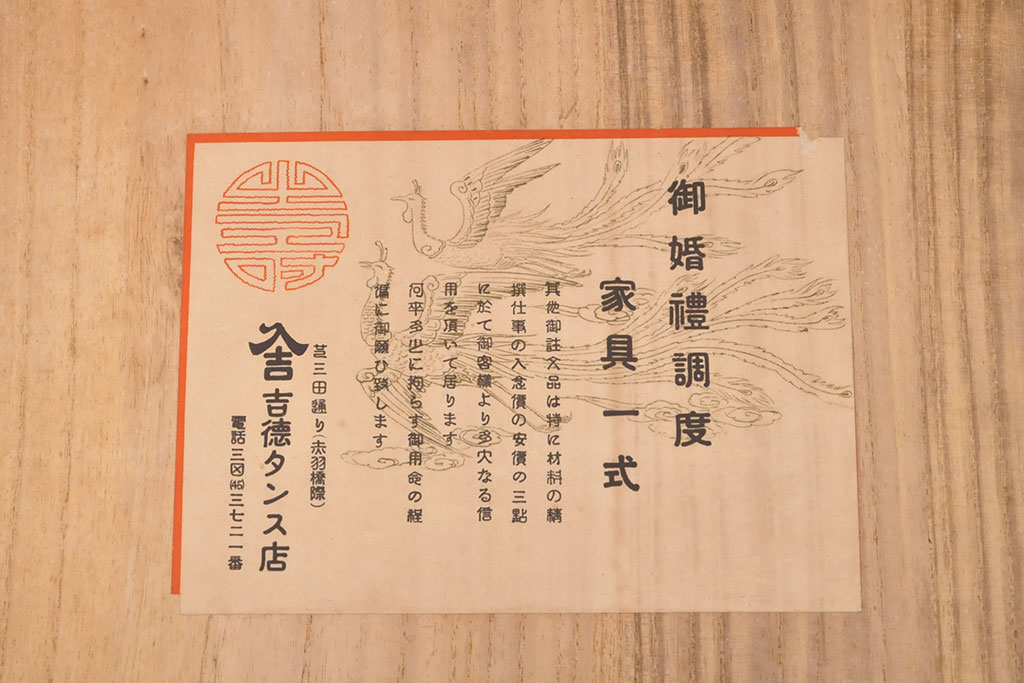 御婚禮調度
家具一式
其他御註文品は特に材料の精
撰仕事の入念價の安價の三點
に於て御客樣より多大なる信
用を頂いて居ります
何卒多少に拘らず御用命の程
偏に御願ひ致します
壽
芝三田通り(赤羽橋際)
吉 吉德タンス店
電話三田(45)三七二一番